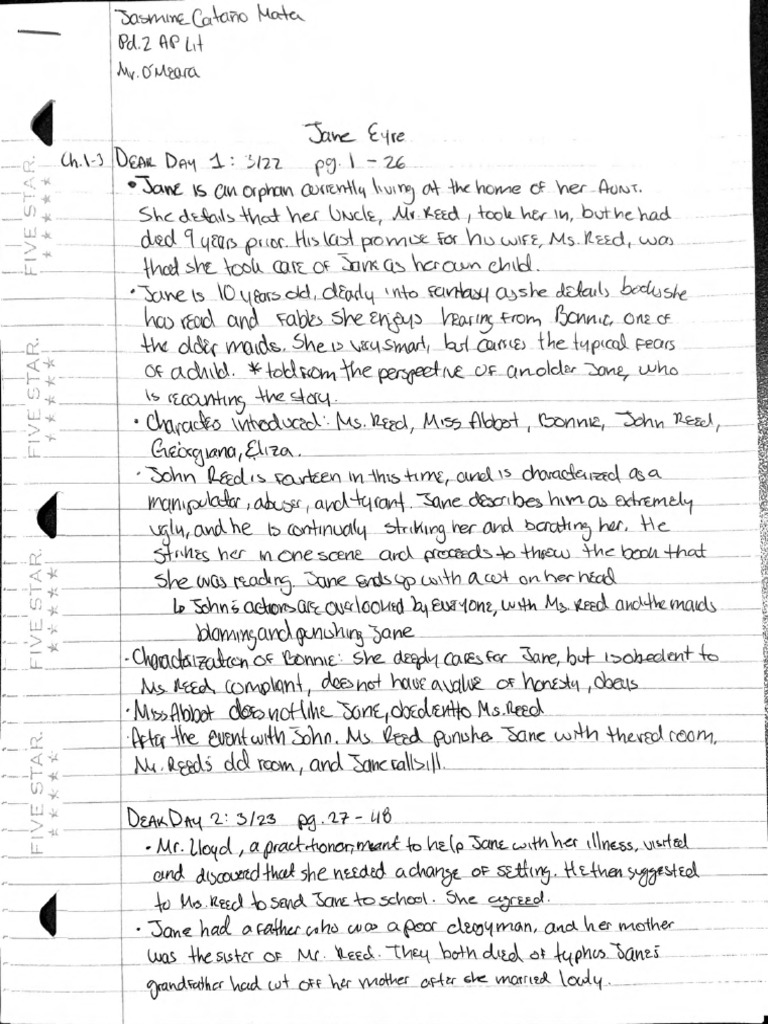 Jasmine Cataño Mata
Pd.2 AP Lit
Mr. O'Meara
Jane Eyre
Ch.1-3 DEAR DAY 1: 3/22 pg. 1 - 26
• Jane is an orphan currently living at the home of her AUNT.
She details that her Uncle, Mr. Reed, took her in, but he had
died 9 years prior. His last promise for his wife, Ms. Reed, was
that she took care of Jane as her own child.
• Jane is 10 years old, clearly into fantasy as she details books she
has read and fables she enjoys hearing from Bonnie, one of
the older maids. She is very smart, but carries the typical fears
of a child. * told from the perspective of an older Jane, who
is recanting the story.
• Characters introduced: Ms. Reed, Miss Abbot, Bonnie, John Reed,
Georgiana, Eliza.
• John Reed is fourteen in this time, and is characterized as a
manipulator, abuser, and tyrant. Jane describes him as extremely
ugly, and he is continually striking her and berating her. He
strikes her in one scene and proceeds to throw the book that
she was reading. Jane ends up with a cut on her head
↳ John's actions are overlooked by everyone, with Ms. Reed and the maids
blaming and punishing Jane
• Characterization of Bonnie: she deeply cares for Jane, but is obedient to
Ms. Reed, complaint, does not have a value of honesty, obeys
• Miss Abbot does not like Jane, obedient to Ms. Reed
• After the event with John, Ms. Reed punishes Jane with the red room,
Mr. Reed's old room, and Jane falls ill.
DEAR DAY 2: 3/23 pg. 27 - 48
• Mr. Lloyd, a practitioner, meant to help Jane with her illness, visited
and discovered that she needed a change of setting. He then suggested
to Ms. Reed to send Jane to school. She agreed.
• Jane had a father who was a poor clergyman, and her mother
was the sister of Mr. Reed. They both died of typhus. Jane's
grandfather had cut off her mother after she married lowly.
FIVE STAR.
FIVE STAR.
FIVE STAR.
FIVE STAR.